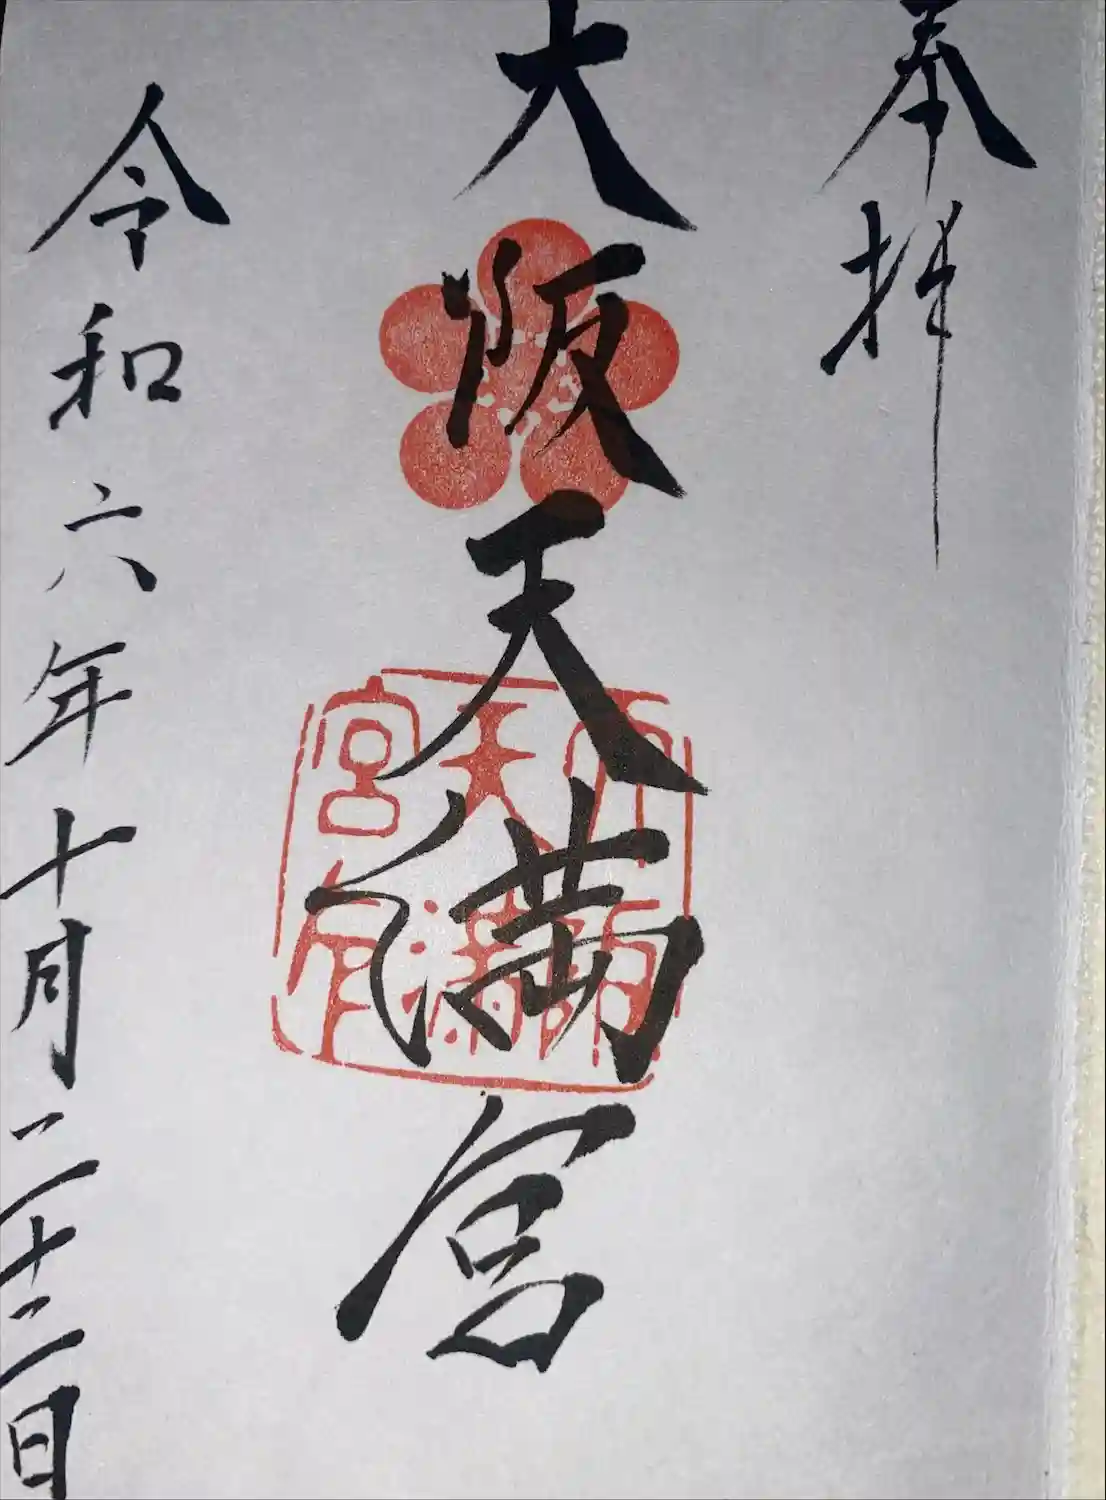 奉拝
大阪天満宮
大阪天満宮印
令和六年十月二十二日